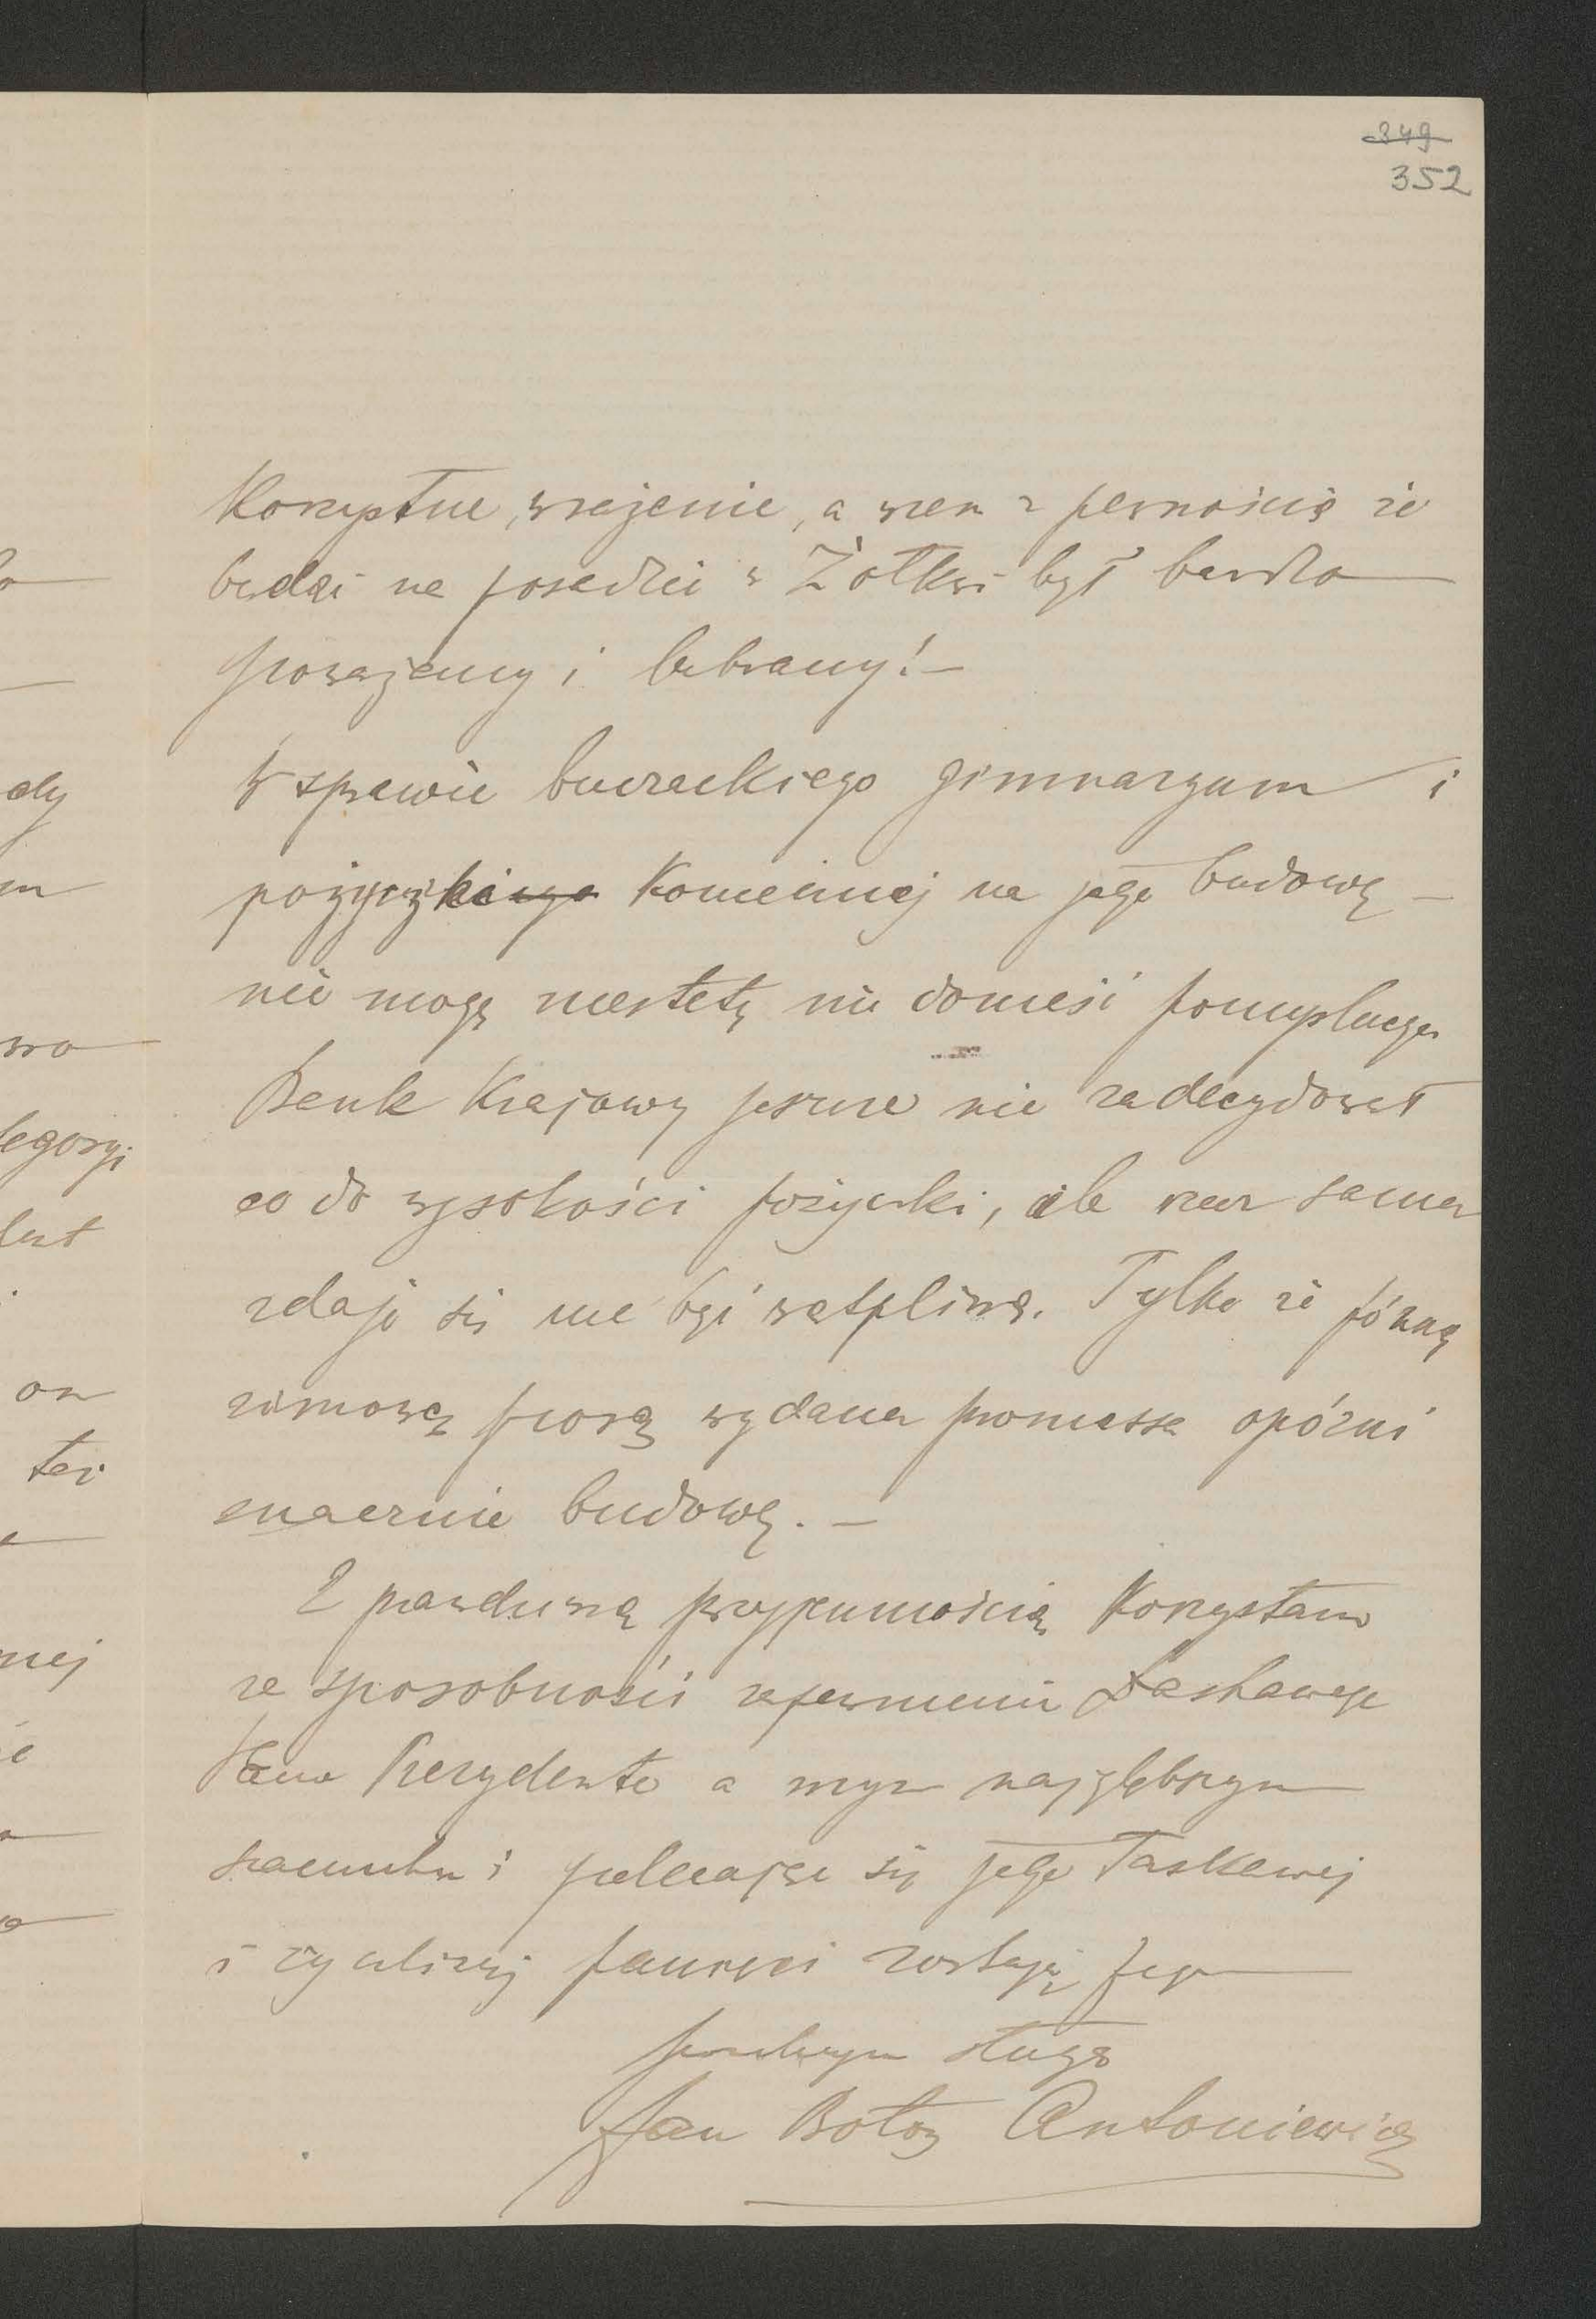 349
352
korzystne wrażenie, a wiem z pewnością że
będzie na posadzie w Żółkwi był bardzo
poważany i lubiany! –
W sprawie buczackiego gimnazyum i
pożyczki koniecznej na jego budowę –
nie mogę niestety nic donieść pomyślnego
Bank Krajowy jeszcze nie zadecydował
co do wysokości pożyczki, ale rzecz sama
zdaje się nie być wątpliwą. Tylko że późną
zimową porą wydana promessa opóźni
znacznie budowę. –
Z prawdziwą przyjemnością korzystam
ze sposobności zapewnienia Łaskawego
Pana Prezydenta o mym najgłębszym
szacunku i polecając się Jego łaskawej
i życzliwej pamięci zostaję Jego
powolnym sługą
Jan Bołoz Antoniewicz
dy
m
wo
legoryi
lest
on
też
nej